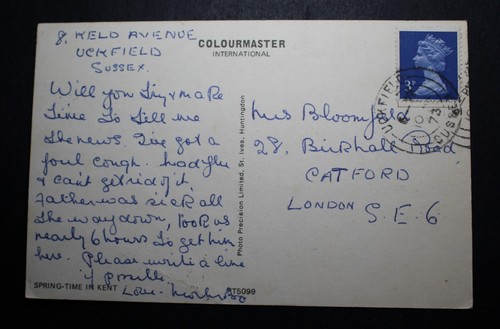 8, KELD AVENUE
UCKFIELD
SUSSEX.
COLOURMASTER
INTERNATIONAL
Will you try & make
time to tell me
the news. I've got a
foul cough. had flu
& can't get rid of it.
Father was sick all
the way down, took us
nearly 6 hours to get him
here. Please write a line
if possible.
Love
SPRING-TIME IN KENT
PT5099
Photo Precision Limited, St. Ives, Huntingdon
Mrs Bloomfield
28, Birkhall Road
CATFORD
LONDON S.E.6
3P
UCKFIELD
73
SUSSEX